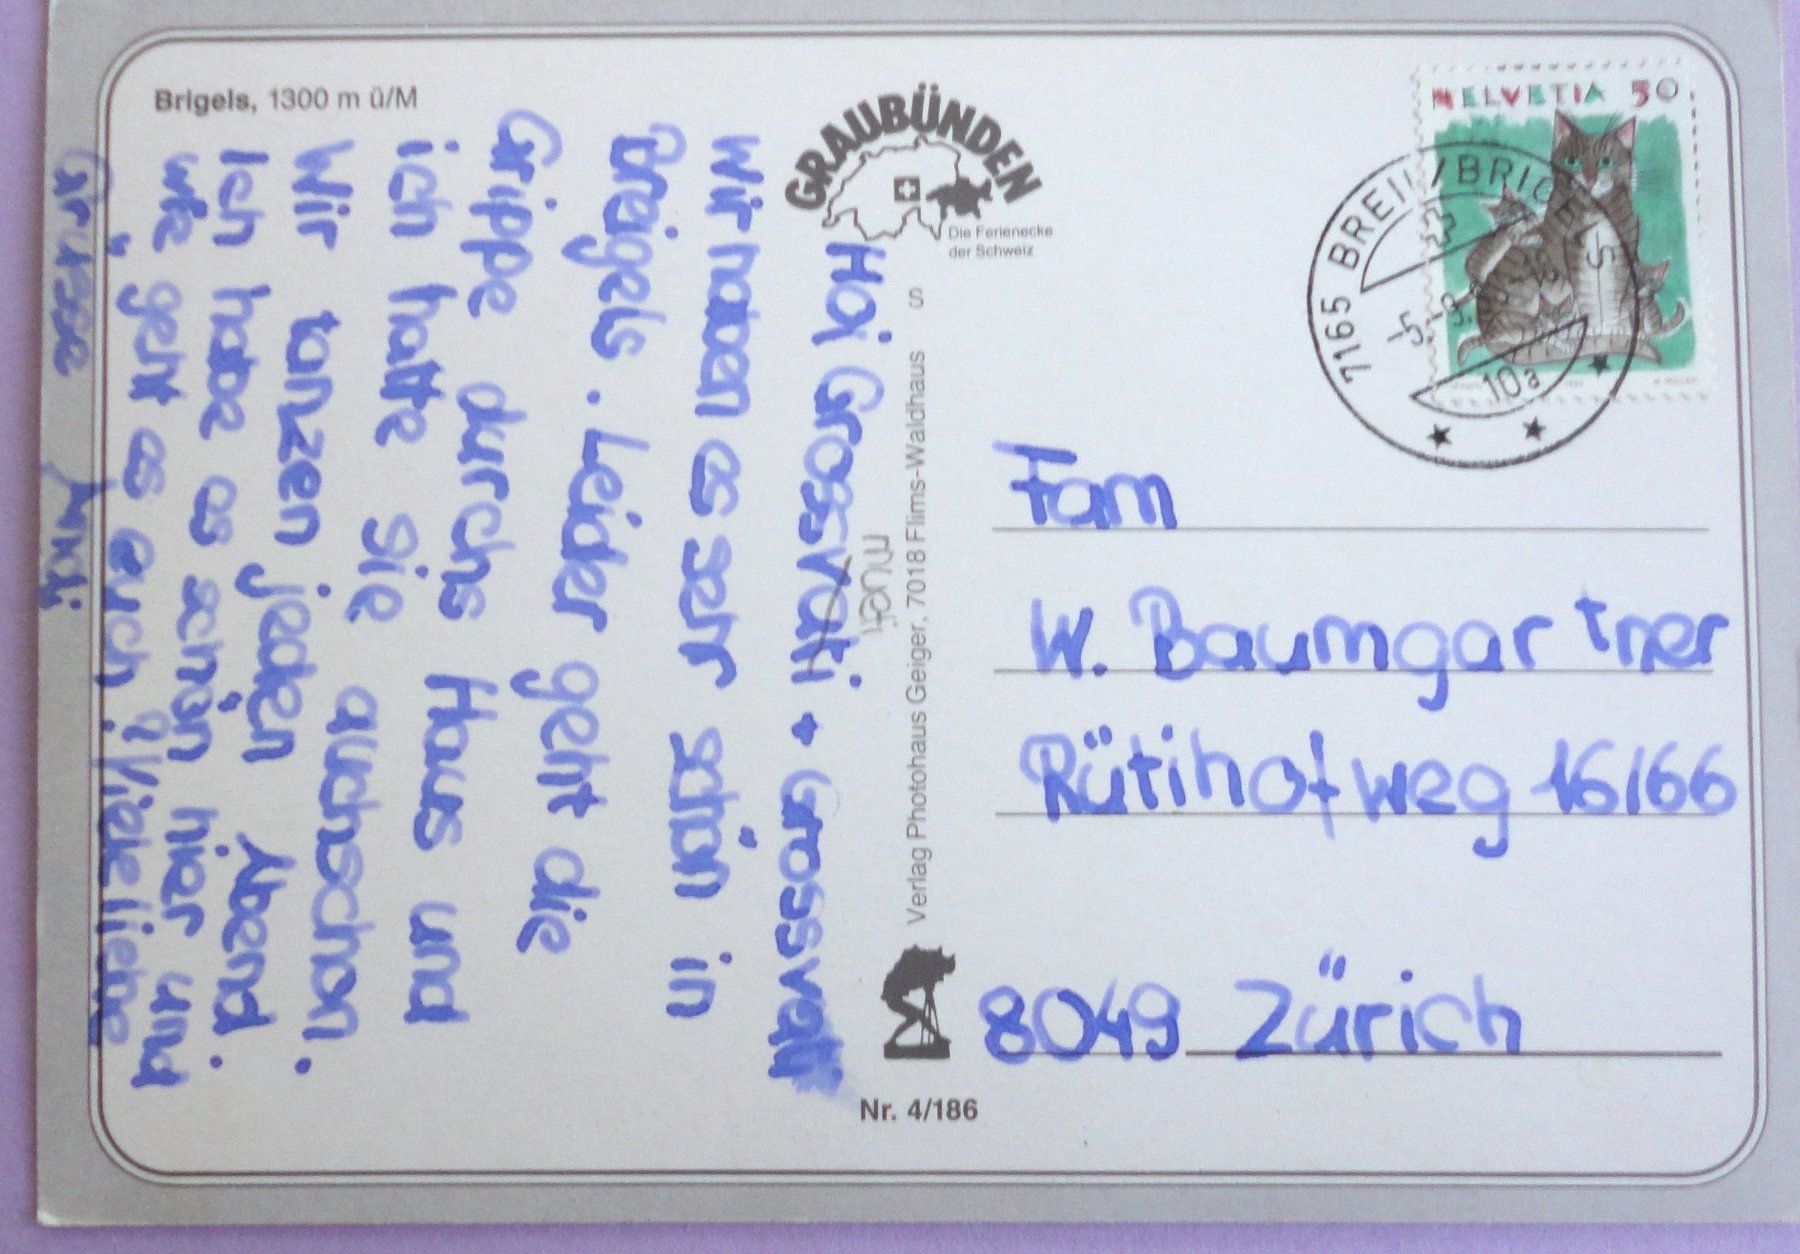 Brigels, 1300 m ü/M
GRAUBÜNDEN
Die Ferienecke
der Schweiz
HELVETIA 50
7165 BREIL/BRIGELS
10a
mueti
Hoi Grossvati + Grossvati
Wir haben es sehr schön in
Breigels. Leider geht die
Grippe durchs Haus und
ich hatte Sie auchschon.
Wir tanzen jeden Abend.
Ich habe es schön hier und
wie geht es euch? Viele liebe
Grüsse
Verlag Photohaus Geiger, 7018 Flims-Waldhaus S
Fam
W. Baumgartner
Rütihofweg 16/66
8049 Zürich
Nr. 4/186